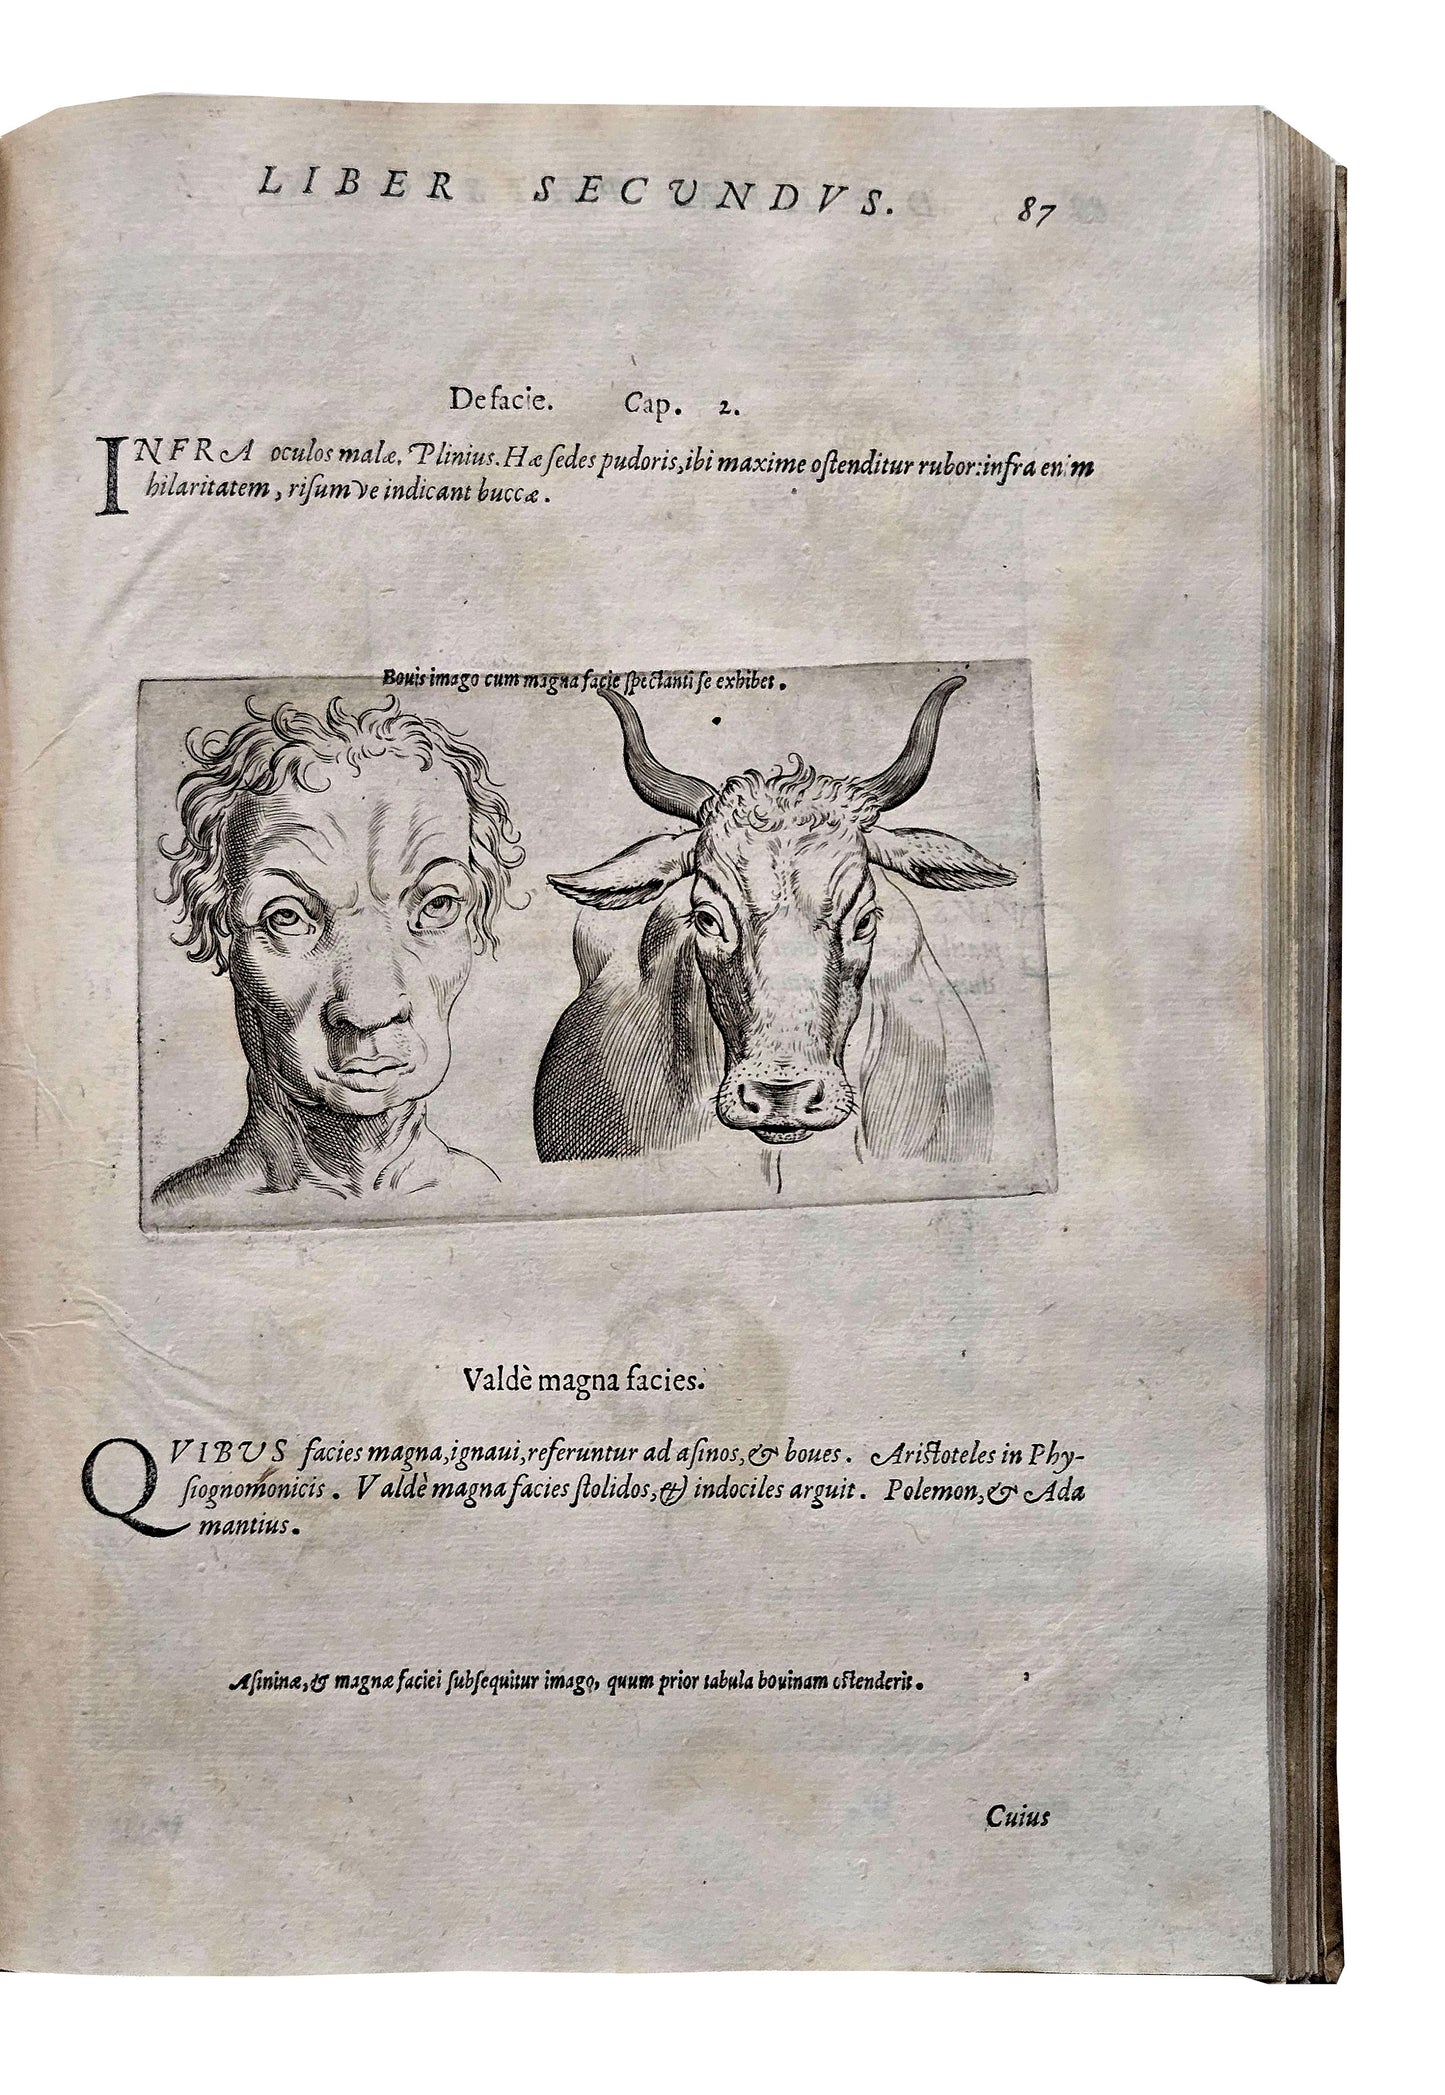 LIBER SECUNDVS. 87
De facie. Cap. 2.
INFRA oculos malæ. Plinius. Hæ ſedes pudoris, ibi maxime oſtenditur rubor: infra enim
hilaritatem, riſumve indicant buccæ.
Bovis imago cum magna facie ſpectanti ſe exhibet.
Valdè magna facies.
QVIBUS facies magna, ignaui, referuntur ad aſinos, & boues. Ariſtoteles in Phy-
ſiognomonicis. Valdè magna facies ſtolidos, & indociles arguit. Polemon, & Ada
mantius.
Aſininæ, & magnæ faciei ſubſequitur imago, quum prior tabula bovinam oſtenderit.
Cuius